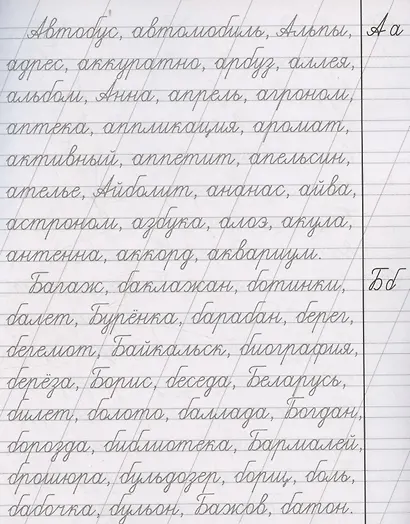 Автобус, автомобиль, Альпы, Аа
адрес, аккуратно, арбуз, аллея,
альбом, Анна, апрель, агроном,
аптека, аппликация, аромат,
активный, аппетит, апельсин,
ателье, Айболит, ананас, айва,
астроном, азбука, алоэ, акула,
антенна, аккорд, аквариум.
Багаж, баклажан, ботинки, Бб
балет, Бурёнка, барабан, берег,
бегемот, Байкальск, биография,
берёза, Борис, беседа, Беларусь,
билет, болото, баллада, Богдан,
борозда, библиотека, Бармалей,
брошюра, бульдозер, борщ, боль,
бабочка, бульон, Бажов, батон.